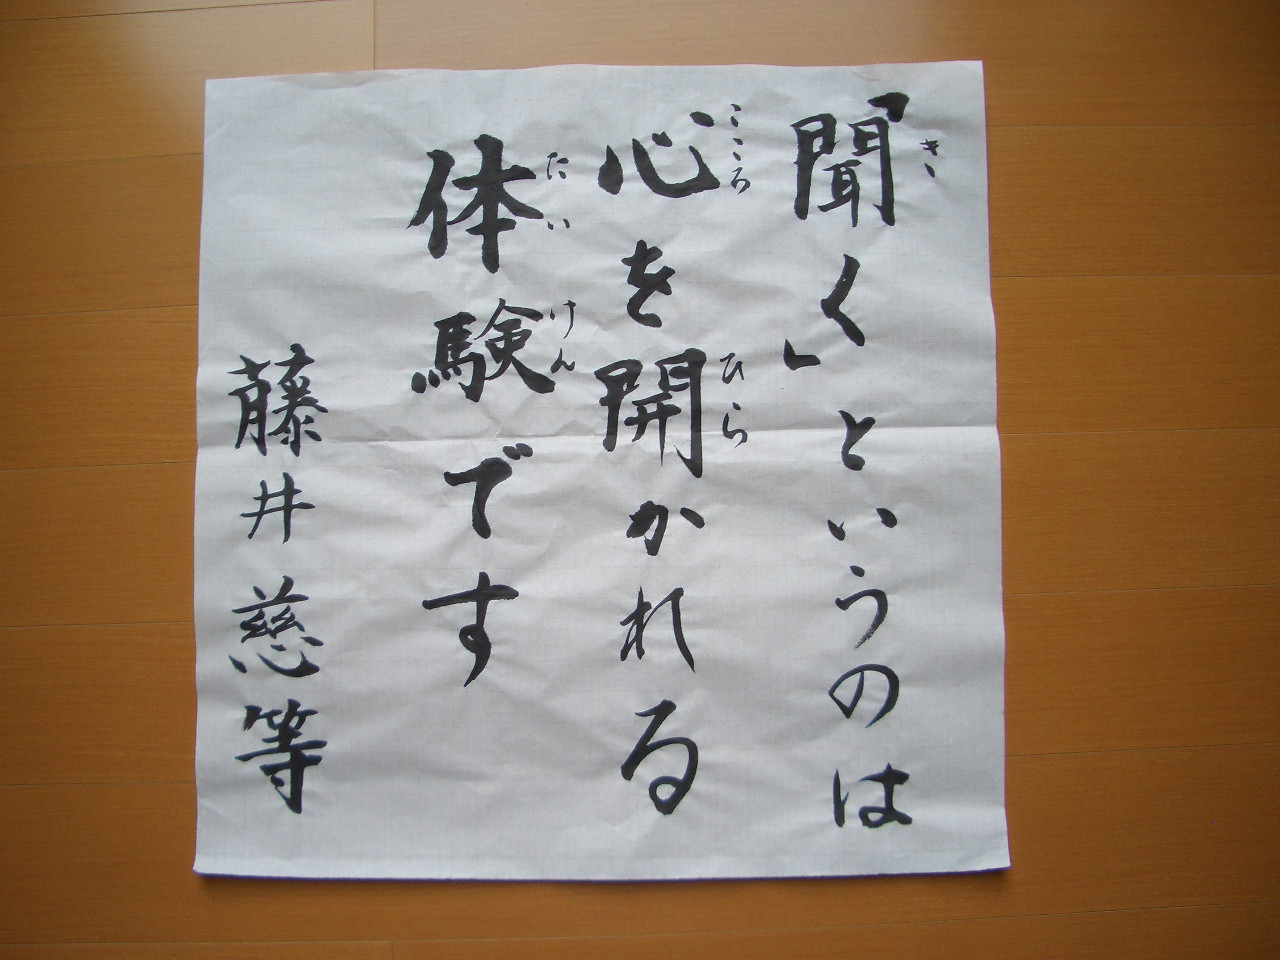 「聞く」というのは
心を開かれる
体験です
藤井慈等
き
こころ
ひら
たい
けん